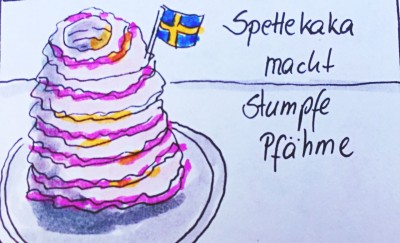 Spettekaka
macht
stumpfe
Pfähme